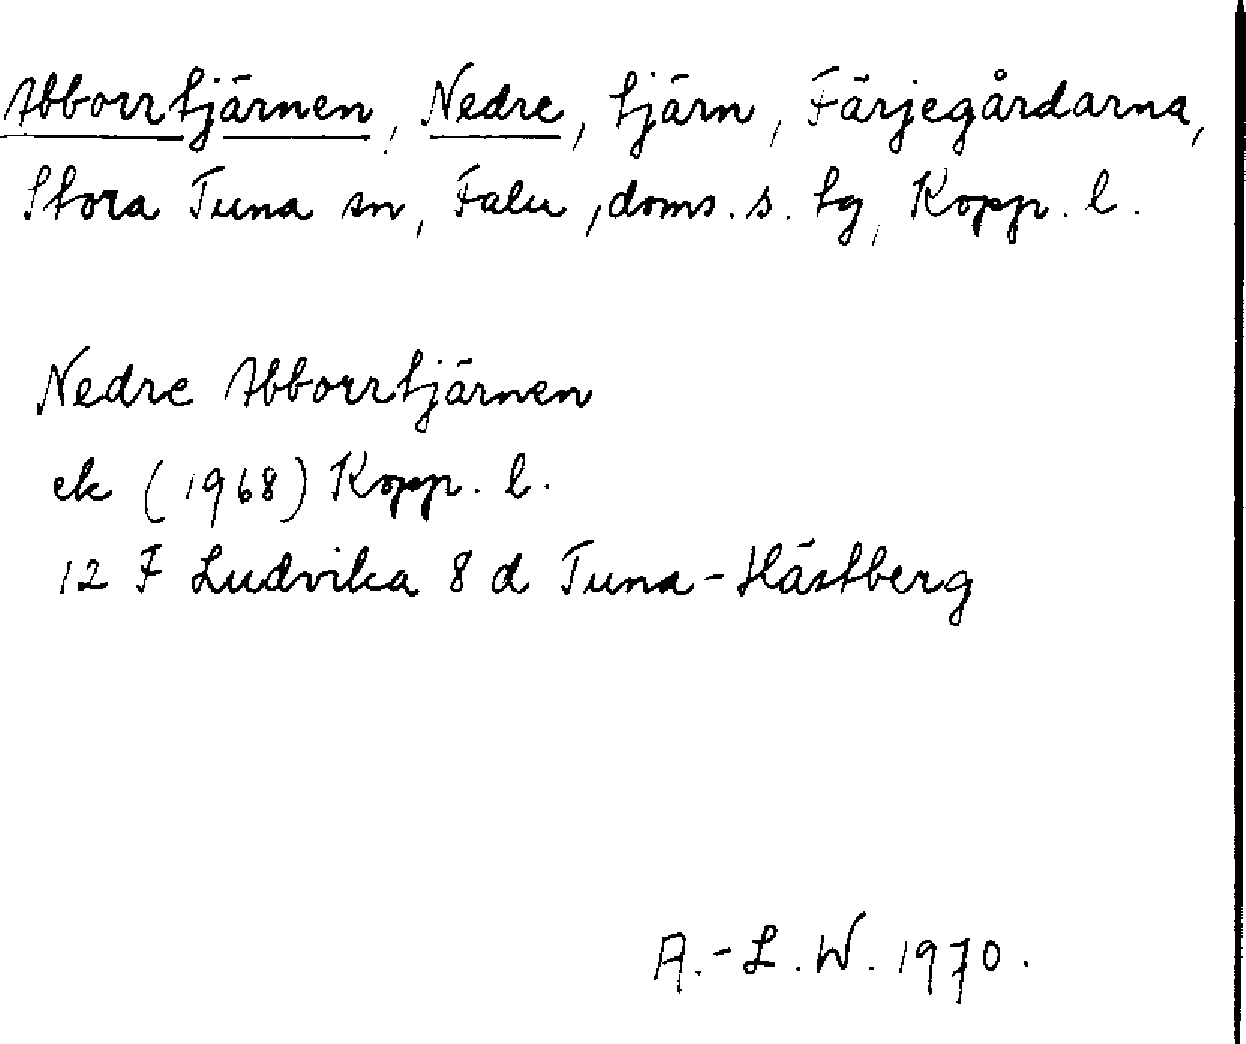 Abborrtjärnen, Nedre, tjärn, Färjegårdarna,
Stora Tuna sn, Falu, doms. s. tg, Kopp. l.
Nedre Abborrtjärnen
ek (1968) Kopp. l.
12 F Ludvika 8 d Tuna-Hästberg
A.-L. W. 1970.